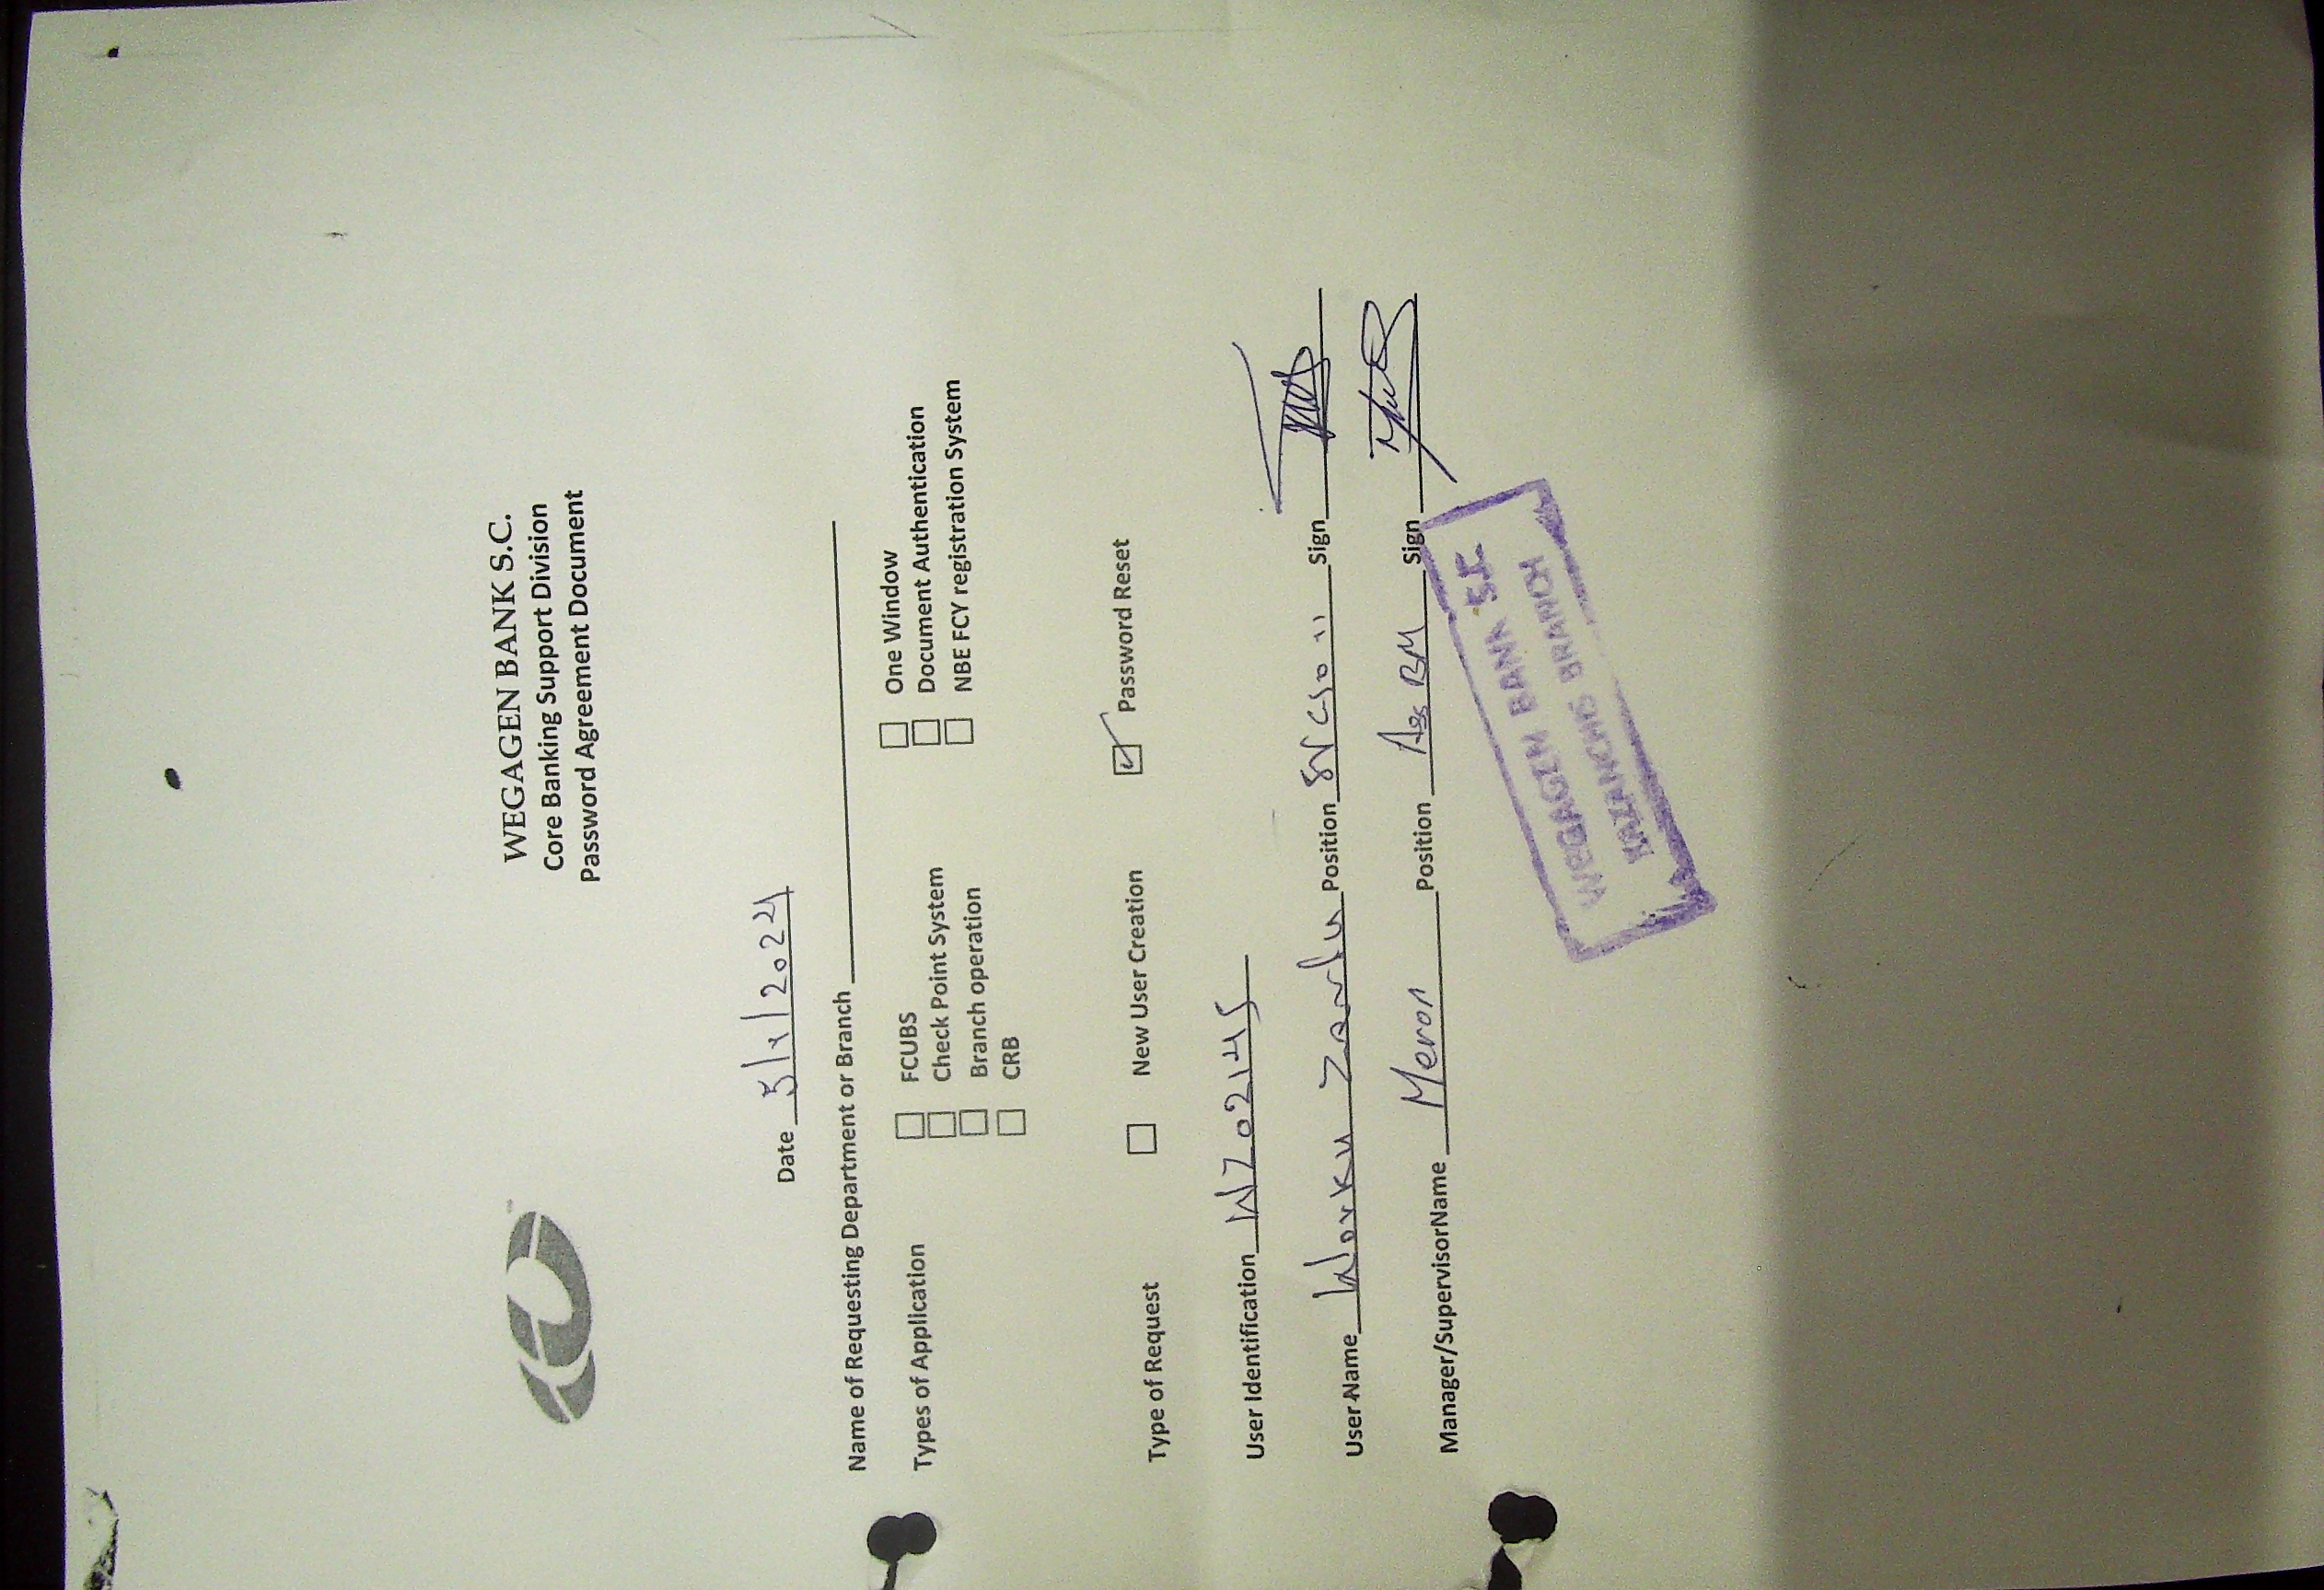 WEGAGEN BANK S.C.
Core Banking Support Division
Password Agreement Document
Date 5/x/2024
Name of Requesting Department or Branch
Types of Application
FCUBS
Check Point System
Branch operation
CRB
One Window
Document Authentication
NBE FCY registration System
Type of Request New User Creation Password Reset
User Identification WZ02145
User Name Worku Position Sign
Manager/SupervisorName Meron Position Ass BM Sign
WEGAGEN BANK S.C
KAZANCHIS BRANCH